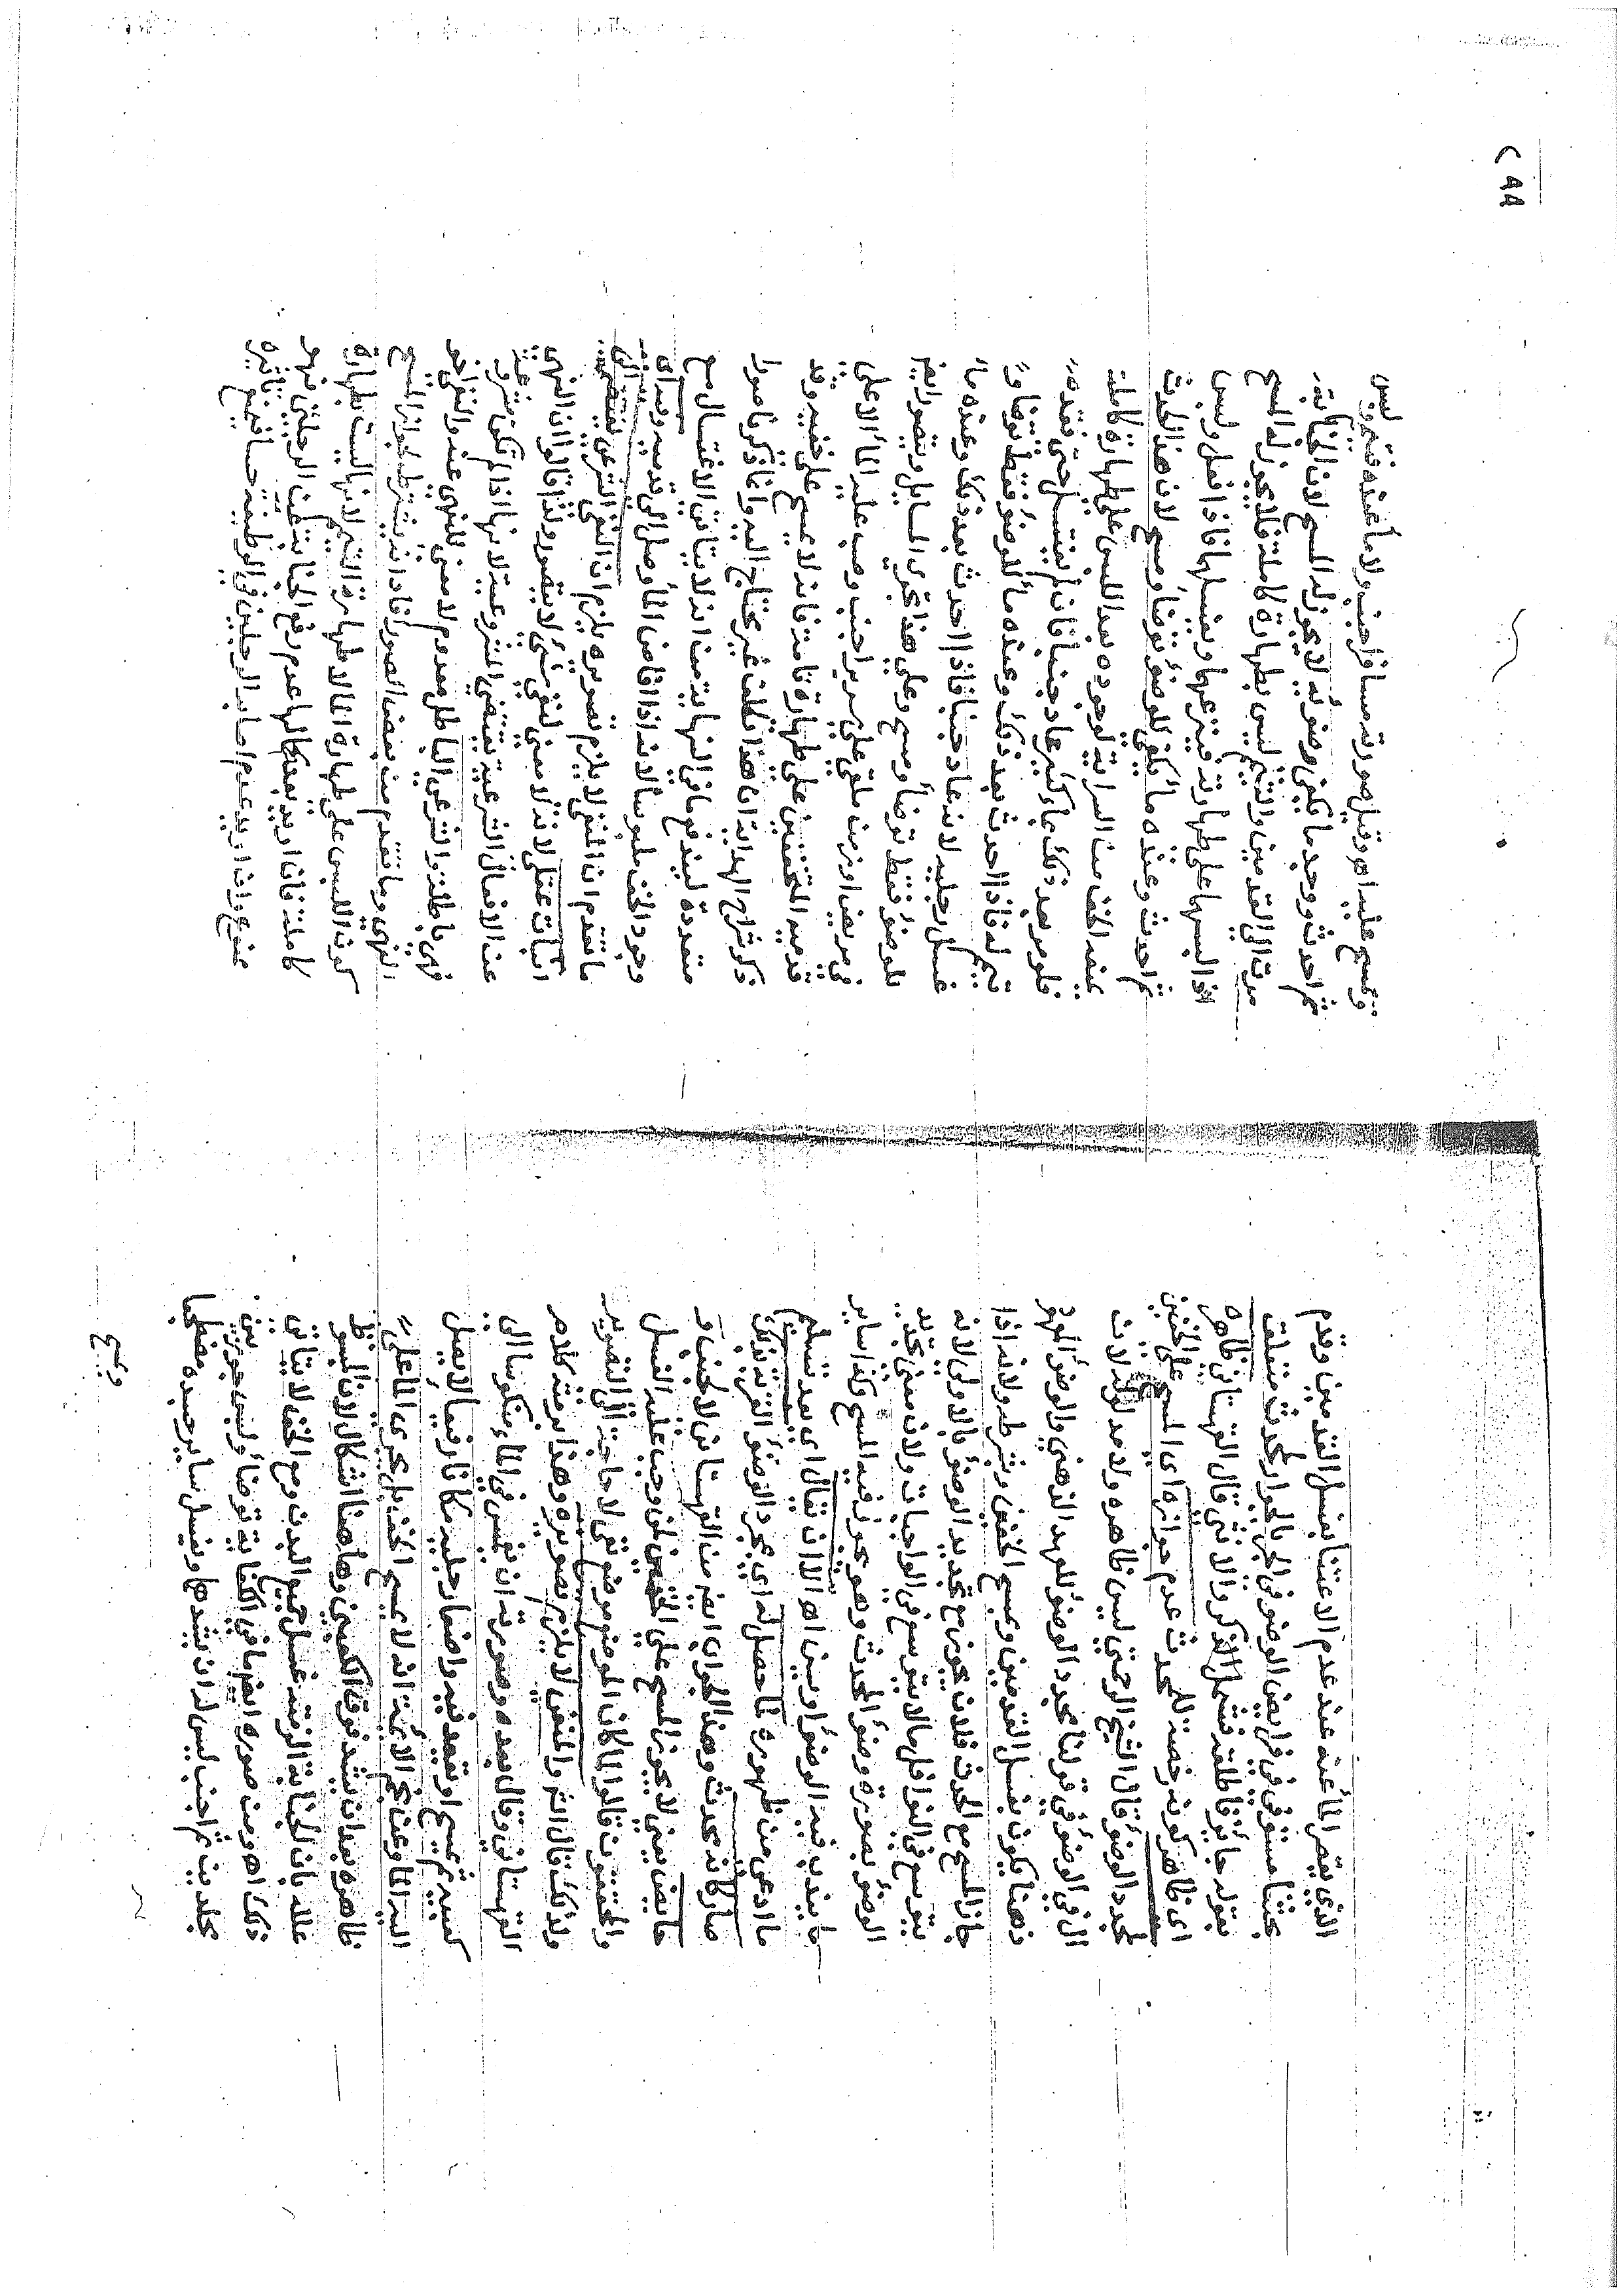 الذي يقصر الماء عنه عند عدم الاعتناء بغسل القدمين وقدم
بحثنا مستوفى في فرايض الوضوء في الجر بالجوار لمحدث متعلق
بقوله جايز فاطلقه فشمل الذكر والانثى قال القهستاني ظاهره
اى ظاهر كونه رخصة للمحدث عدم جوازه اى المسح على الخفين
لمجدد الوضوء قال الشيخ الرحمتي ليس ظاهره ولا مدلوله لان
ال في الوضوء في قولنا مجدد الوضوء للعهد الذهني والوضوء المعهود
ذهنا يكون بغسل القدمين وبمسح الخفين بشرطه ولانه اذا
جاز المسح مع الحدث فلان يجوز مع تجديد الوضوء بالاولى لانه
يتوسع في النوافل ما لا يتوسع في الواجبات ولان معنى تجديد
الوضوء بصورة وضوء المحدث وهو يجوز فيه المسح وكذا ساير
ما يندب فيه الوضوء اوبين اهـ الا ان يقال اى بعد تسليم
ما ادعى من ظهوره لما حصل له اي لمجرد الوضوء القربة بذلك
صار كانه محدث وهذا الجواب ايضا من القهستاني لا لجنب و
حايض يعني لا يجوز المسح على الخفين لمن وجب عليه الغسل
والمحققون قالوا المكان الموضع موضع نفي لا حاجة الى التصوير
ولذلك قال الشر والمنفي لا يلزم تصويره وهذا برمته كلام
القهستاني وقال بعده وصورته ان يغتسل في الماء منكوسا الى
كعبيه ثم تمسح او يقعد فيه واضعا رجليه مكانا رفيعا لا يصل
اليه الماء وعن نجم الائمة انه لا يمسح الخف بل يجرى الماء على
ظاهره بعد ان يشد فوق الكعبين وهاهنا اشكال لان المبسوط
علله بان الجنابة الزمته غسل جميع البدن ومع الخف لا يتاتى
ذلك اهـ ومن صوره ايضا ما في الكفاية توضأ ولبس جوربين
مجلدين ثم اجنب ليس له ان يشدهما ويغسل ساير جسده مضطجعا
ويمسح
٢٩٩
ويمسح عليه اهـ وقيل صورته مسافر اجنب ولا ماء عنده فتيمم ولبس
ثم احدث ووجد ما يكفي وضوئه لا يجوز له المسح لان الجنابة
سرت الى القدمين والتيمم ليس بطهارة كاملة فلا يجوز له المسح
اذا لبسهما على طهارته فينزعهما ويغسلهما فاذا فعل ولبس
ثم احدث وعنده ما يكفي للوضوء توضأ ومسح لان هذا الحدث
يمنعه الخف من السراية لوجوده بعد اللبس على طهارة كاملة
فلو مر بعد ذلك بماء كثير عاد جنبا فان لم يغتسل حتى فقده
تيمم له فاذا احدث بعد ذلك وعنده ماء للوضوء فقط توضأ و
غسل رجليه لانه عاد جنبا فاذا احدث بعد ذلك وعنده ماء
للوضوء فقط توضأ ومسح وعلى هذا تجرى المسايل وتصور ايض
في مريض او زمن ملقى على سرير اجنب وصب عليه الماء الا على
قدميه المتخففين على طهارة تامة فانه لا يمسح على خفيه وقد
ذكر شراح الهداية ان هذا تكلف غير محتاج اليه وانما ذكر تا صورا
متعددة ليندفع ما في النهاية من انه لا يتاتى الاغتسال مع
وجود الخف ملبوسا لانه اذا افاض الماء وصل الى قدميه وقد اى
ما تقدم ان المنفي لا يلزم تصويره يلزم ان النفي الشرعي يفتقر الى
اثبات عقلى لانه لا معنى لنفي شيء لا يتصور ولذا قالوا ان النهى
عن الافعال الشرعية يقتضى المشروعية لانها اذا لم تكن مشروعة
فهي باطلة والشرعي الباطل معدوم لا معنى للنهى عنه والنفي اخو
النهى وما تقدم من بعض الصور افاد انه يشترط لجواز المسح
كون اللبس على طهارة الماء لا طهارة التيمم لانها ليست بطهارة
كاملة فان اريد بعدم كمالها عدم رفع الجنابة عن الرجلين فهو
ممنوع وان اريد عدم اصابة الرجلين في الوظيفة حسا فيمنع تاثيره